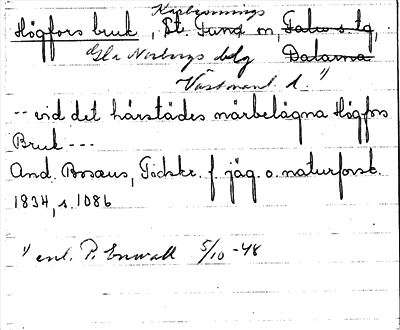 Karbennings
Högfors bruk, St. Tuna sn, Falu s. lg,
Gla Norbergs bslg Dalarna
Västmanl. l. 1)
-- vid det härstädes närbelägna Högfors
Bruk ---
And. Bosæus, Tidskr. f. jäg. o. naturforsk.
1834, s. 1086
1) enl. P. Enwall 5/10 -48